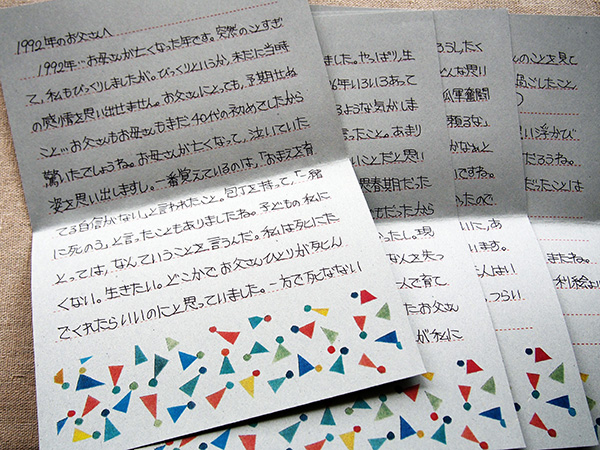 1992年のお父さんへ
1992年…お母さんが亡くなった年です。突然のことすぎ
て、私もびっくりしましたが。びっくりというか、未だに当時
の感情を思い出せません。お父さんにとっても、予期せぬ
こと…お父さんもお母さんもまだ40代の初めでしたから
驚いたでしょうね。お母さんが亡くなって、泣いていた
姿を思い出しますし。一番覚えているのは、「おまえを育
てる自信がない」と言われたこと。包丁を持って、「一緒
に死のう」と言ったこともありましたね。子どもの私に
とっては、なんていうことを言うんだ。私は死にた
くない。生きたい。どこかでお父さんひとりが死ん
でくれたらいいのにと思っていました。一方で死なない
ました。やっぱり、生
年いろいろあって
るような気がしま
ったこと。あまり
いことだと思い
思春期だった
もだったから
ったし。現
なんを失っ
人で育て
たお父さん
が私に
ろうしたく
どんな思い
孤軍奮闘
頼るな」
かなぁと
ですね。
ったので
にい、あ
います。
たんはい
、つらい
んのことを見て
過ごしたこと
い浮かび
だろうね。
だったことは
またね。
利絵より